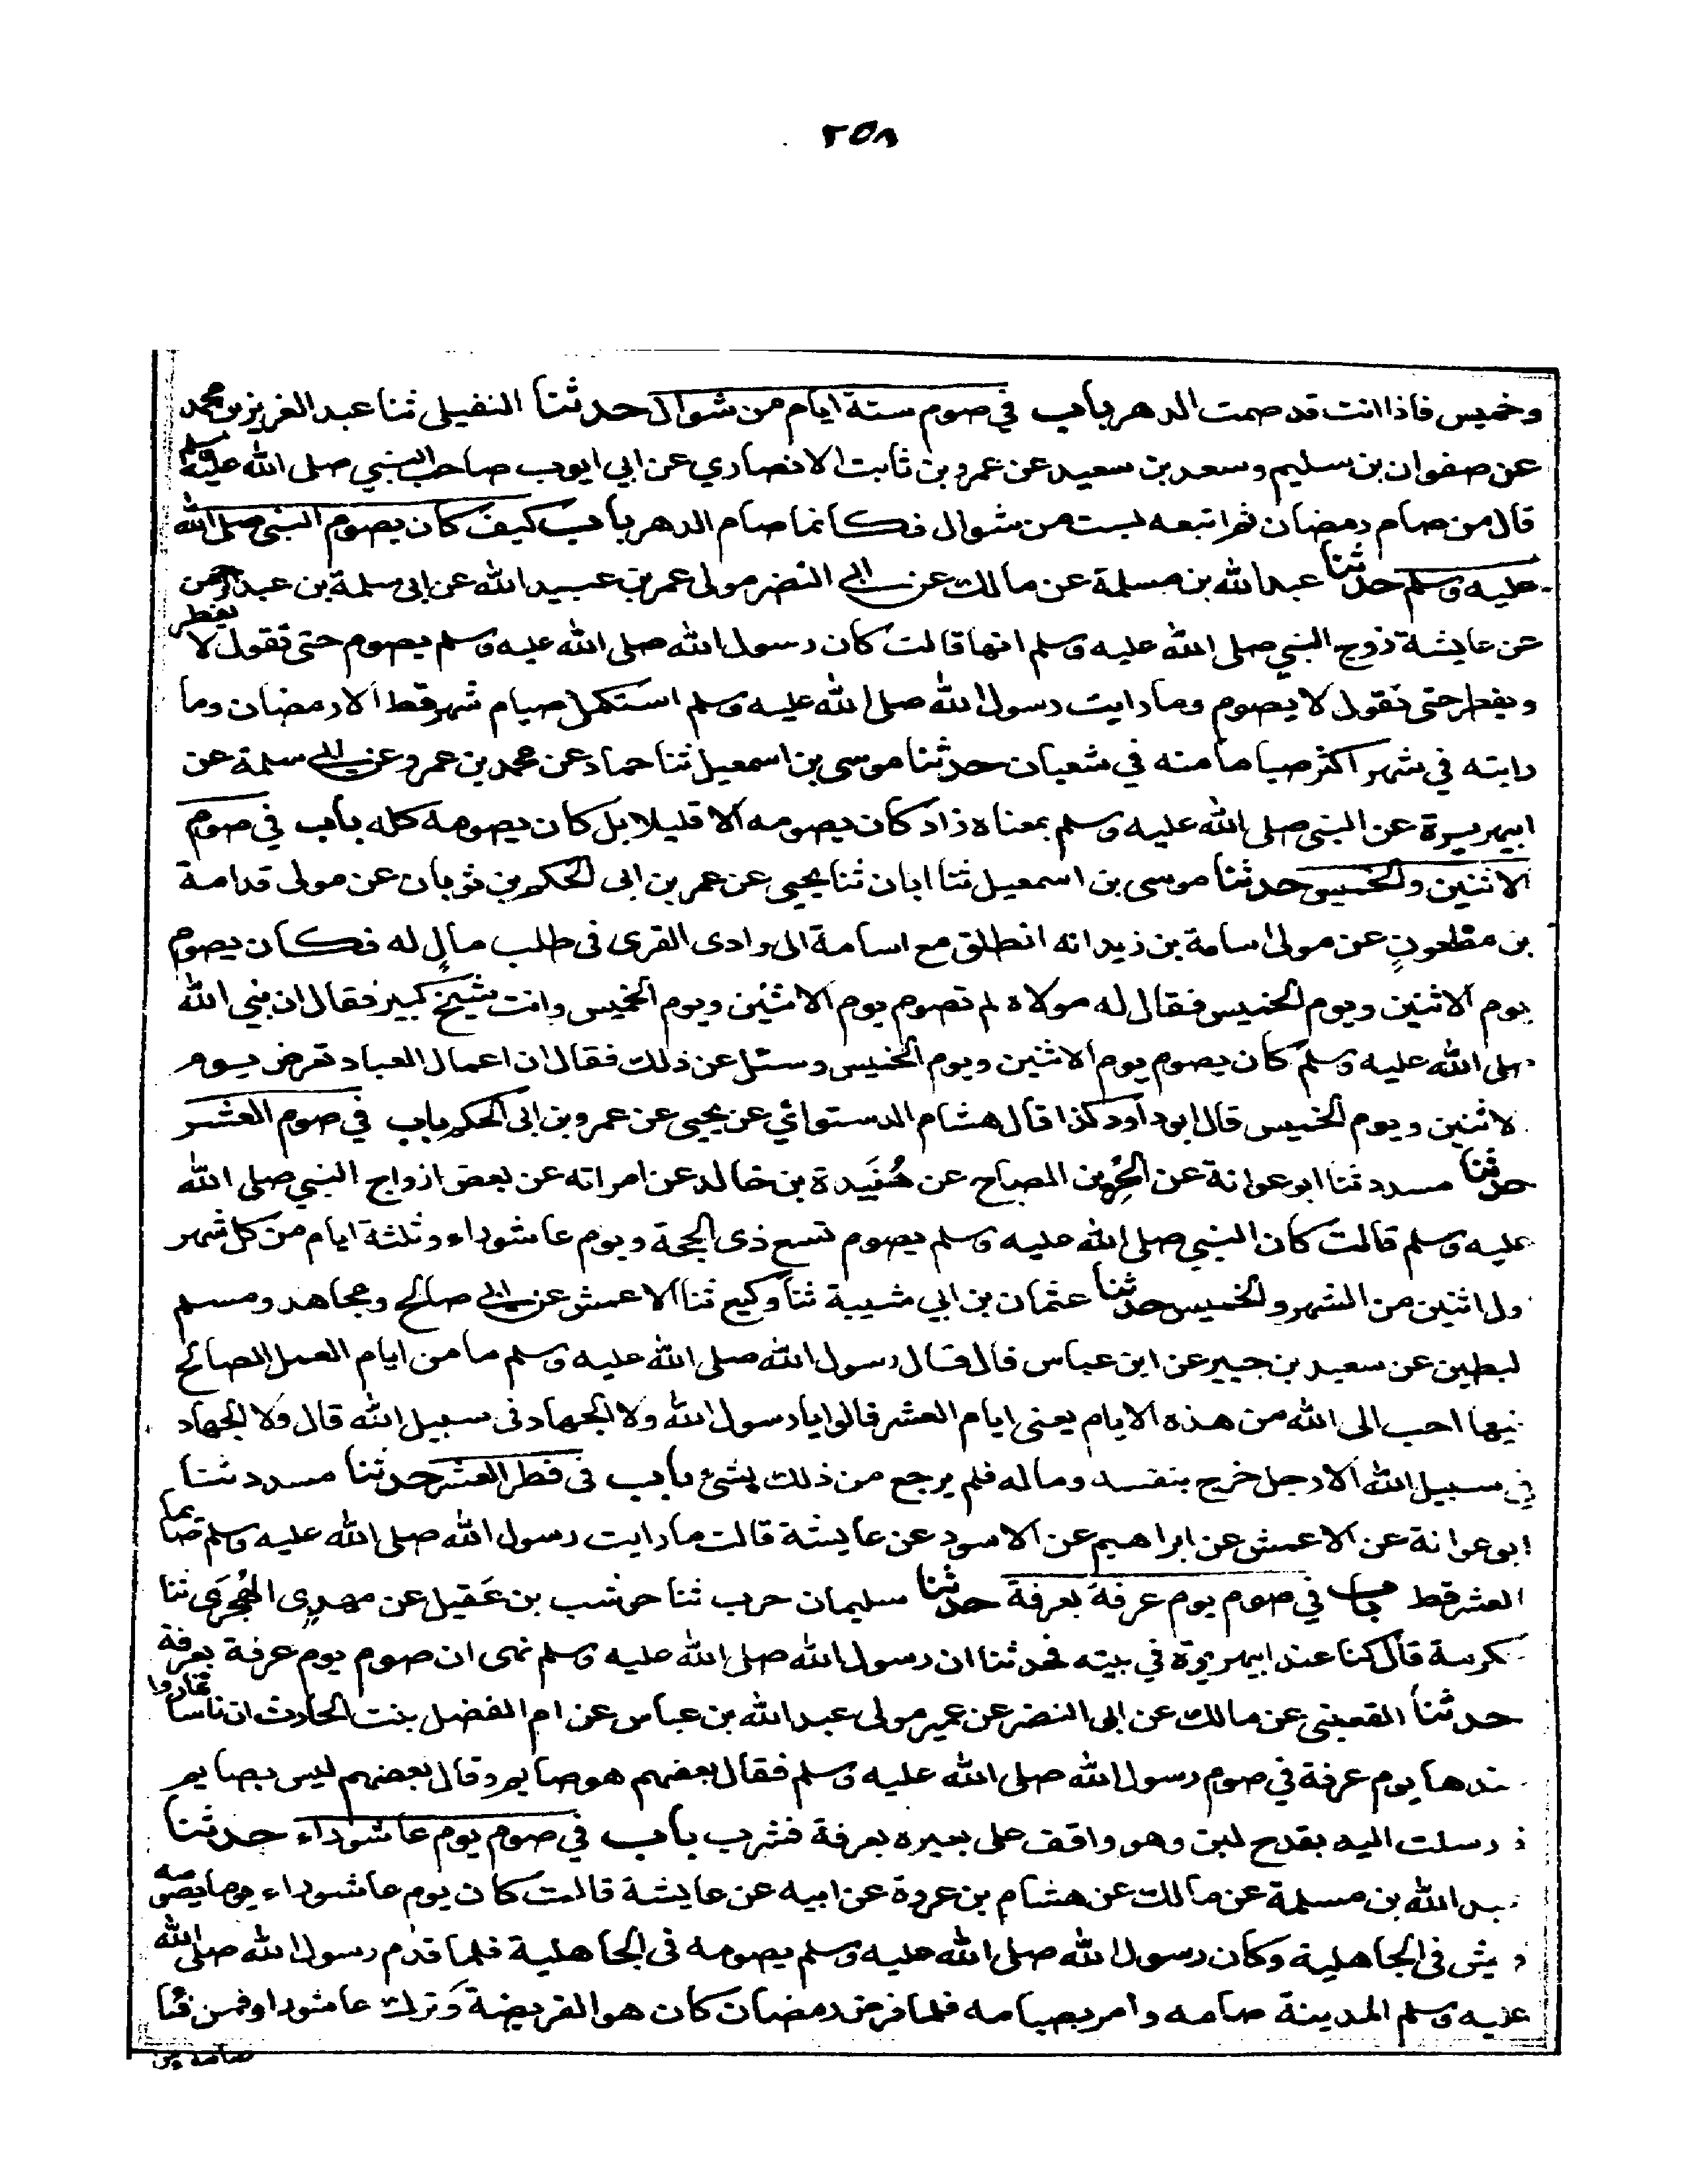 ٢٥٨
وخميس فاذا انت قد صمت الدهر باب في صوم ستة ايام من شوال حدثنا النفيلى ثنا عبد العزيز بن محمد
عن صفوان بن سليم وسعد بن سعيد عن عمرو بن ثابت الانصاري عن ابي ايوب صاحب النبي صلى الله عليه وسلم
قال من صام رمضان ثم اتبعه بست من شوال فكانما صام الدهر باب كيف كان يصوم النبي صلى الله
عليه وسلم حدثنا عبد الله بن مسلمة عن مالك عن ابي النضر مولى عمر بن عبيد الله عن ابى سلمة بن عبد الرحمن
عن عايشة زوج النبي صلى الله عليه وسلم انها قالت كان رسول الله صلى الله عليه وسلم يصوم حتى نقول لا يفطر
ويفطر حتى نقول لا يصوم وما رايت رسول الله صلى الله عليه وسلم استكمل صيام شهر قط الا رمضان وما
رايته في شهر اكثر صياما منه في شعبان حدثنا موسى بن اسمعيل ثنا حماد عن محمد بن عمرو عن ابي سلمة عن
ابيهريرة عن النبى صلى الله عليه وسلم بمعناه زاد كان يصومه الا قليلا بل كان يصومه كله باب في صوم
الاثنين والخميس حدثنا موسى بن اسمعيل ثنا ابان ثنا يحيى عن عمر بن ابى الحكم بن ثوبان عن مولى قدامة
بن مظعون عن مولى اسامة بن زيد انه انطلق مع اسامة الى وادى القرى فى طلب مال له فكان يصوم
يوم الاثنين ويوم الخميس فقال له مولاه لم تصوم يوم الاثنين ويوم الخميس وانت شيخ كبير فقال ان نبي الله
صلى الله عليه وسلم كان يصوم يوم الاثنين ويوم الخميس وسئل عن ذلك فقال ان اعمال العباد تعرض يوم
لاثنين ويوم الخميس قال ابو داود كذا قال هشام الدستوائي عن يحيى عن عمرو بن ابى الحكم باب في صوم العشر
حدثنا مسدد ثنا ابو عوانة عن الحر بن الصباح عن هُنَيدة بن خالد عن امراته عن بعض ازواج النبي صلى الله
عليه وسلم قالت كان النبي صلى الله عليه وسلم يصوم تسع ذى الحجة ويوم عاشوراء وثلثة ايام من كل شهر
ول اثنين من الشهر والخميس حدثنا عثمان بن ابي شيبة ثنا وكيع ثنا الاعمش عن ابي صالح ومجاهد ومسلم
لبطين عن سعيد بن جبير عن ابن عباس قال قال رسول الله صلى الله عليه وسلم ما من ايام العمل الصالح
فيها احب الى الله من هذه الايام يعنى ايام العشر قالوا يا رسول الله ولا الجهاد فى سبيل الله قال ولا الجهاد
في سبيل الله الا رجل خرج بنفسه وماله فلم يرجع من ذلك بشئ باب فى فطر العشر حدثنا مسدد ثنا
ابو عوانة عن الاعمش عن ابراهيم عن الاسود عن عايشة قالت ما رايت رسول الله صلى الله عليه وسلم صايما
العشر قط باب في صوم يوم عرفة بعرفة حدثنا سليمان حرب ثنا حوشب بن عَقيل عن مهدى الهجرى ثنا
عكرمة قال كنا عند ابيهريرة في بيته فحدثنا ان رسول الله صلى الله عليه وسلم نهى ان صوم يوم عرفة بعرفة
حدثنا القعنبى عن مالك عن ابى النضر عن عمير مولى عبد الله بن عباس عن ام الفضل بنت الحارث ان ناسا تماروا
ندها يوم عرفة في صوم رسول الله صلى الله عليه وسلم فقال بعضهم هو صايم وقال بعضهم ليس بصايم
رسلت اليه بقدح لبن وهو واقف على بعيره بعرفة فشرب باب في صوم يوم عاشوراء حدثنا
عبد الله بن مسلمة عن مالك عن هشام بن عروة عن ابيه عن عايشة قالت كان يوم عاشوراء يوما يصومه
قريش فى الجاهلية وكان رسول الله صلى الله عليه وسلم يصومه فى الجاهلية فلما قدم رسول الله صلى الله
عليه وسلم المدينة صامه وامر بصيامه فلما فرض رمضان كان هو الفريضة وترك عاشورا فمن شا
صامه ومن